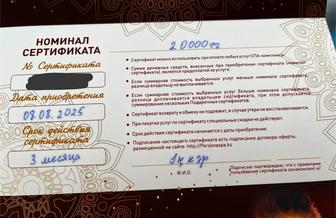 НОМИНАЛ
СЕРТИФИКАТА
20000 тг
№ Сертификата
Дата приобретения
08.08.2025
Срок действия
сертификата
3 месяца
• Сертификат можно использовать при оплате любых услуг СПА-комплекса.
• Сумма денежных средств, внесенных при приобретении сертификата (номинал
сертификата), является предоплатой за услуги.
• Если суммарная стоимость выбранных услуг меньше номинала сертификата,
разница владельцу не выплачивается.
• Если суммарная стоимость выбранных услуг больше номинала сертификата,
разница доплачивается владельцем сертификата, при этом допускается
суммирование нескольких Подарочных сертификатов.
• Сертификат возврату и обмену не подлежит, в случае утери не восстанавливается.
• При покупке услуг по сертификату специальные скидки не действуют.
• Срок действия сертификата начинается с даты приобретения.
• Подписание настоящего сертификата есть подписание договора оферты,
размещенной на сайте: http://Personaspa.kz
Ф.И.О.
Подписью подтверждаю, что с правилами
пользования сертификата ознакомлен(-а)